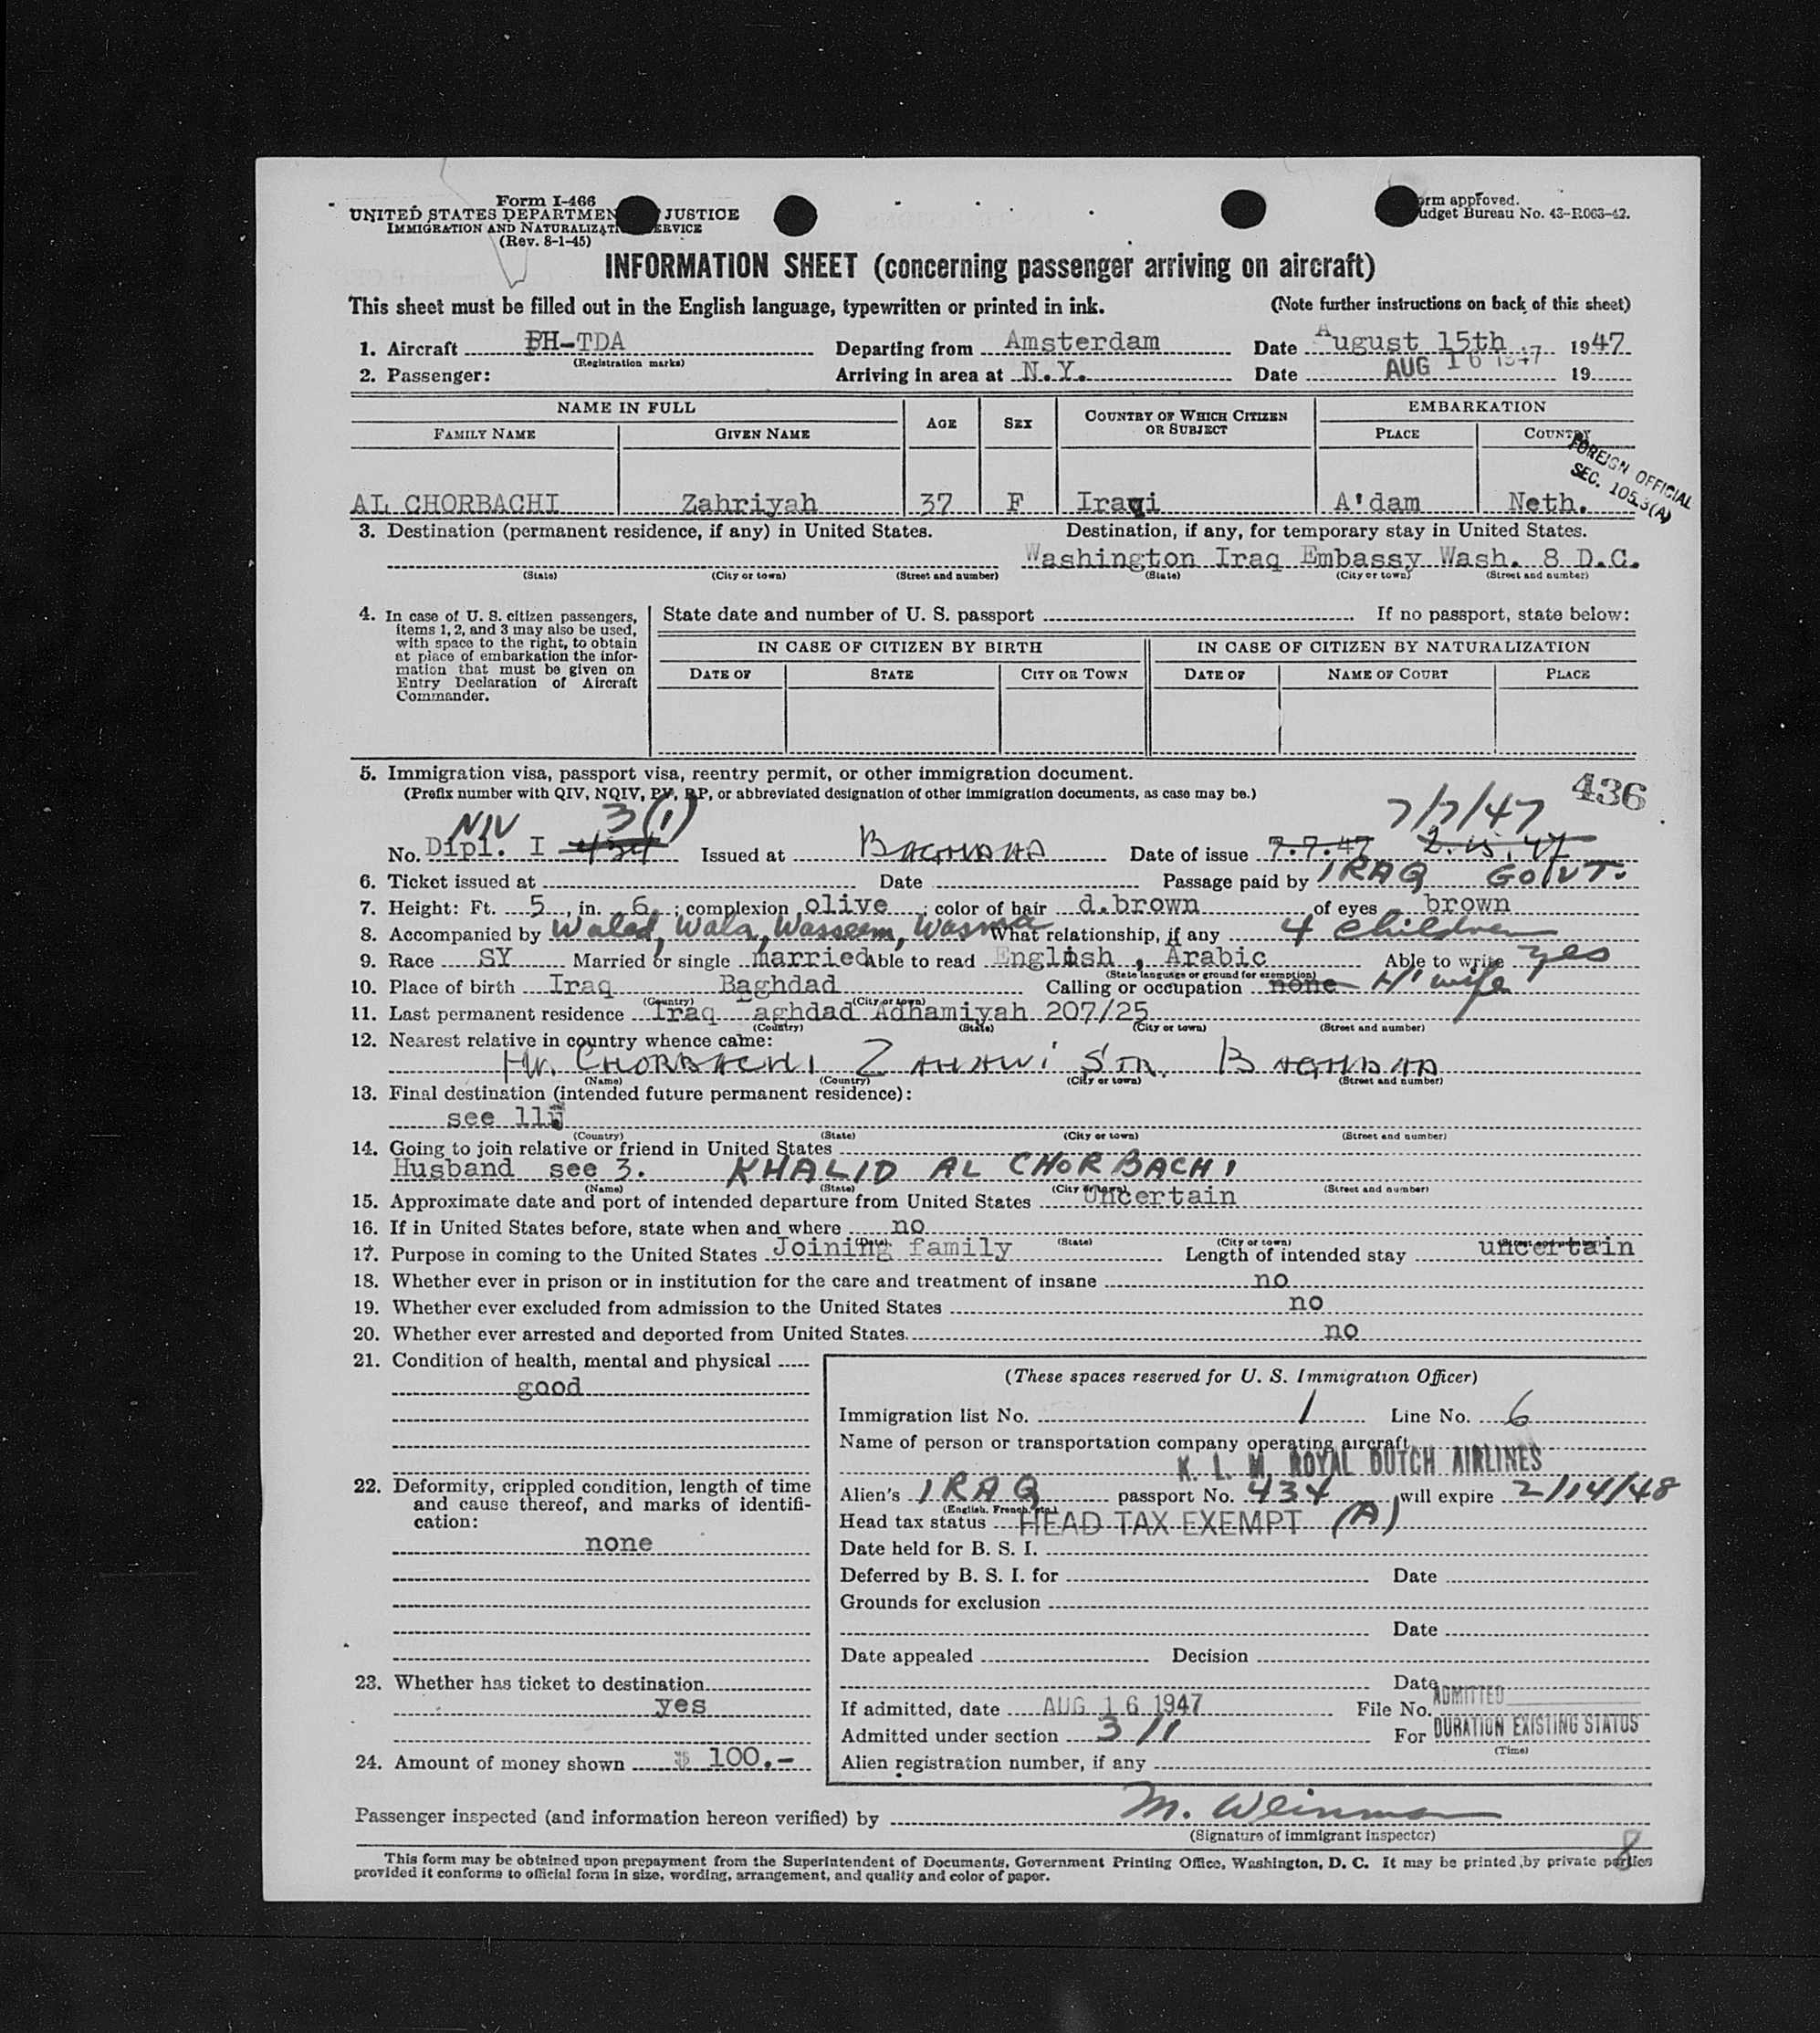 Form I-466
UNITED STATES DEPARTMEN JUSTICE
IMMIGRATION AND NATURALIZATI ERVICE
(Rev. 8-1-45)
orm approved.
udget Bureau No. 43-R063-42.
INFORMATION SHEET (concerning passenger arriving on aircraft)
This sheet must be filled out in the English language, typewritten or printed in ink. (Note further instructions on back of this sheet)
1. Aircraft PH-TDA Departing from Amsterdam Date August 15th 1947
(Registration marks)
2. Passenger: Arriving in area at N.Y. Date AUG 16 1947 19
NAME IN FULL AGE SEX COUNTRY OF WHICH CITIZEN OR SUBJECT EMBARKATION
FAMILY NAME GIVEN NAME PLACE COUNTRY
FOREIGN OFFICIAL
SEC. 105.3(A)
AL CHORBACHI Zahriyah 37 F Iraqi A'dam Neth.
3. Destination (permanent residence, if any) in United States. Destination, if any, for temporary stay in United States.
Washington Iraq Embassy Wash. 8 D.C.
(State) (City or town) (Street and number) (State) (City or town) (Street and number)
4. In case of U. S. citizen passengers, items 1, 2, and 3 may also be used, with space to the right, to obtain at place of embarkation the information that must be given on Entry Declaration of Aircraft Commander.
State date and number of U. S. passport If no passport, state below:
IN CASE OF CITIZEN BY BIRTH IN CASE OF CITIZEN BY NATURALIZATION
DATE OF STATE CITY OR TOWN DATE OF NAME OF COURT PLACE
5. Immigration visa, passport visa, reentry permit, or other immigration document.
(Prefix number with QIV, NQIV, PV, RP, or abbreviated designation of other immigration documents, as case may be.)
436
NIV 3(1) 7/7/47
No. Dipl. I 434 Issued at BAGHDAD Date of issue 7.7.47 2.15.47
6. Ticket issued at Date Passage paid by IRAQ GOVT.
7. Height: Ft. 5, in. 6; complexion olive; color of hair d.brown of eyes brown
8. Accompanied by Waled, Wala, Wasseem, Wasma What relationship, if any 4 children
9. Race SY Married or single married Able to read English, Arabic Able to write yes
(State language or ground for exemption)
10. Place of birth Iraq Baghdad Calling or occupation none H'wife
(Country) (City or town)
11. Last permanent residence Iraq aghdad Adhamiyah 207/25
(Country) (State) (City or town) (Street and number)
12. Nearest relative in country whence came:
CHORBACHI ZAHAWI STR. BAGHDAD
(Name) (Country) (City or town) (Street and number)
13. Final destination (intended future permanent residence):
see 11
(Country) (State) (City or town) (Street and number)
14. Going to join relative or friend in United States
Husband see 3. KHALID AL CHORBACHI
(Name) (State) (City or town) (Street and number)
15. Approximate date and port of intended departure from United States Uncertain
16. If in United States before, state when and where no
(Date) (State) (City or town) (Street and number)
17. Purpose in coming to the United States Joining family Length of intended stay uncertain
18. Whether ever in prison or in institution for the care and treatment of insane no
19. Whether ever excluded from admission to the United States no
20. Whether ever arrested and deported from United States. no
21. Condition of health, mental and physical
good
22. Deformity, crippled condition, length of time and cause thereof, and marks of identification:
none
23. Whether has ticket to destination
yes
24. Amount of money shown $ 100.-
(These spaces reserved for U. S. Immigration Officer)
Immigration list No. 1 Line No. 6
Name of person or transportation company operating aircraft
K. L. M. ROYAL DUTCH AIRLINES
Alien's IRAQ passport No. 434 will expire 2/14/48
(English, French, etc.)
Head tax status HEAD TAX EXEMPT (A)
Date held for B. S. I.
Deferred by B. S. I. for Date
Grounds for exclusion
Date
Date appealed Decision
Date
If admitted, date AUG 16 1947 File No. ADMITTED
Admitted under section 3/1 For DURATION EXISTING STATUS
(Time)
Alien registration number, if any
Passenger inspected (and information hereon verified) by M. Weinman
(Signature of immigrant inspector)
8
This form may be obtained upon prepayment from the Superintendent of Documents, Government Printing Office, Washington, D. C. It may be printed by private parties
provided it conforms to official form in size, wording, arrangement, and quality and color of paper.